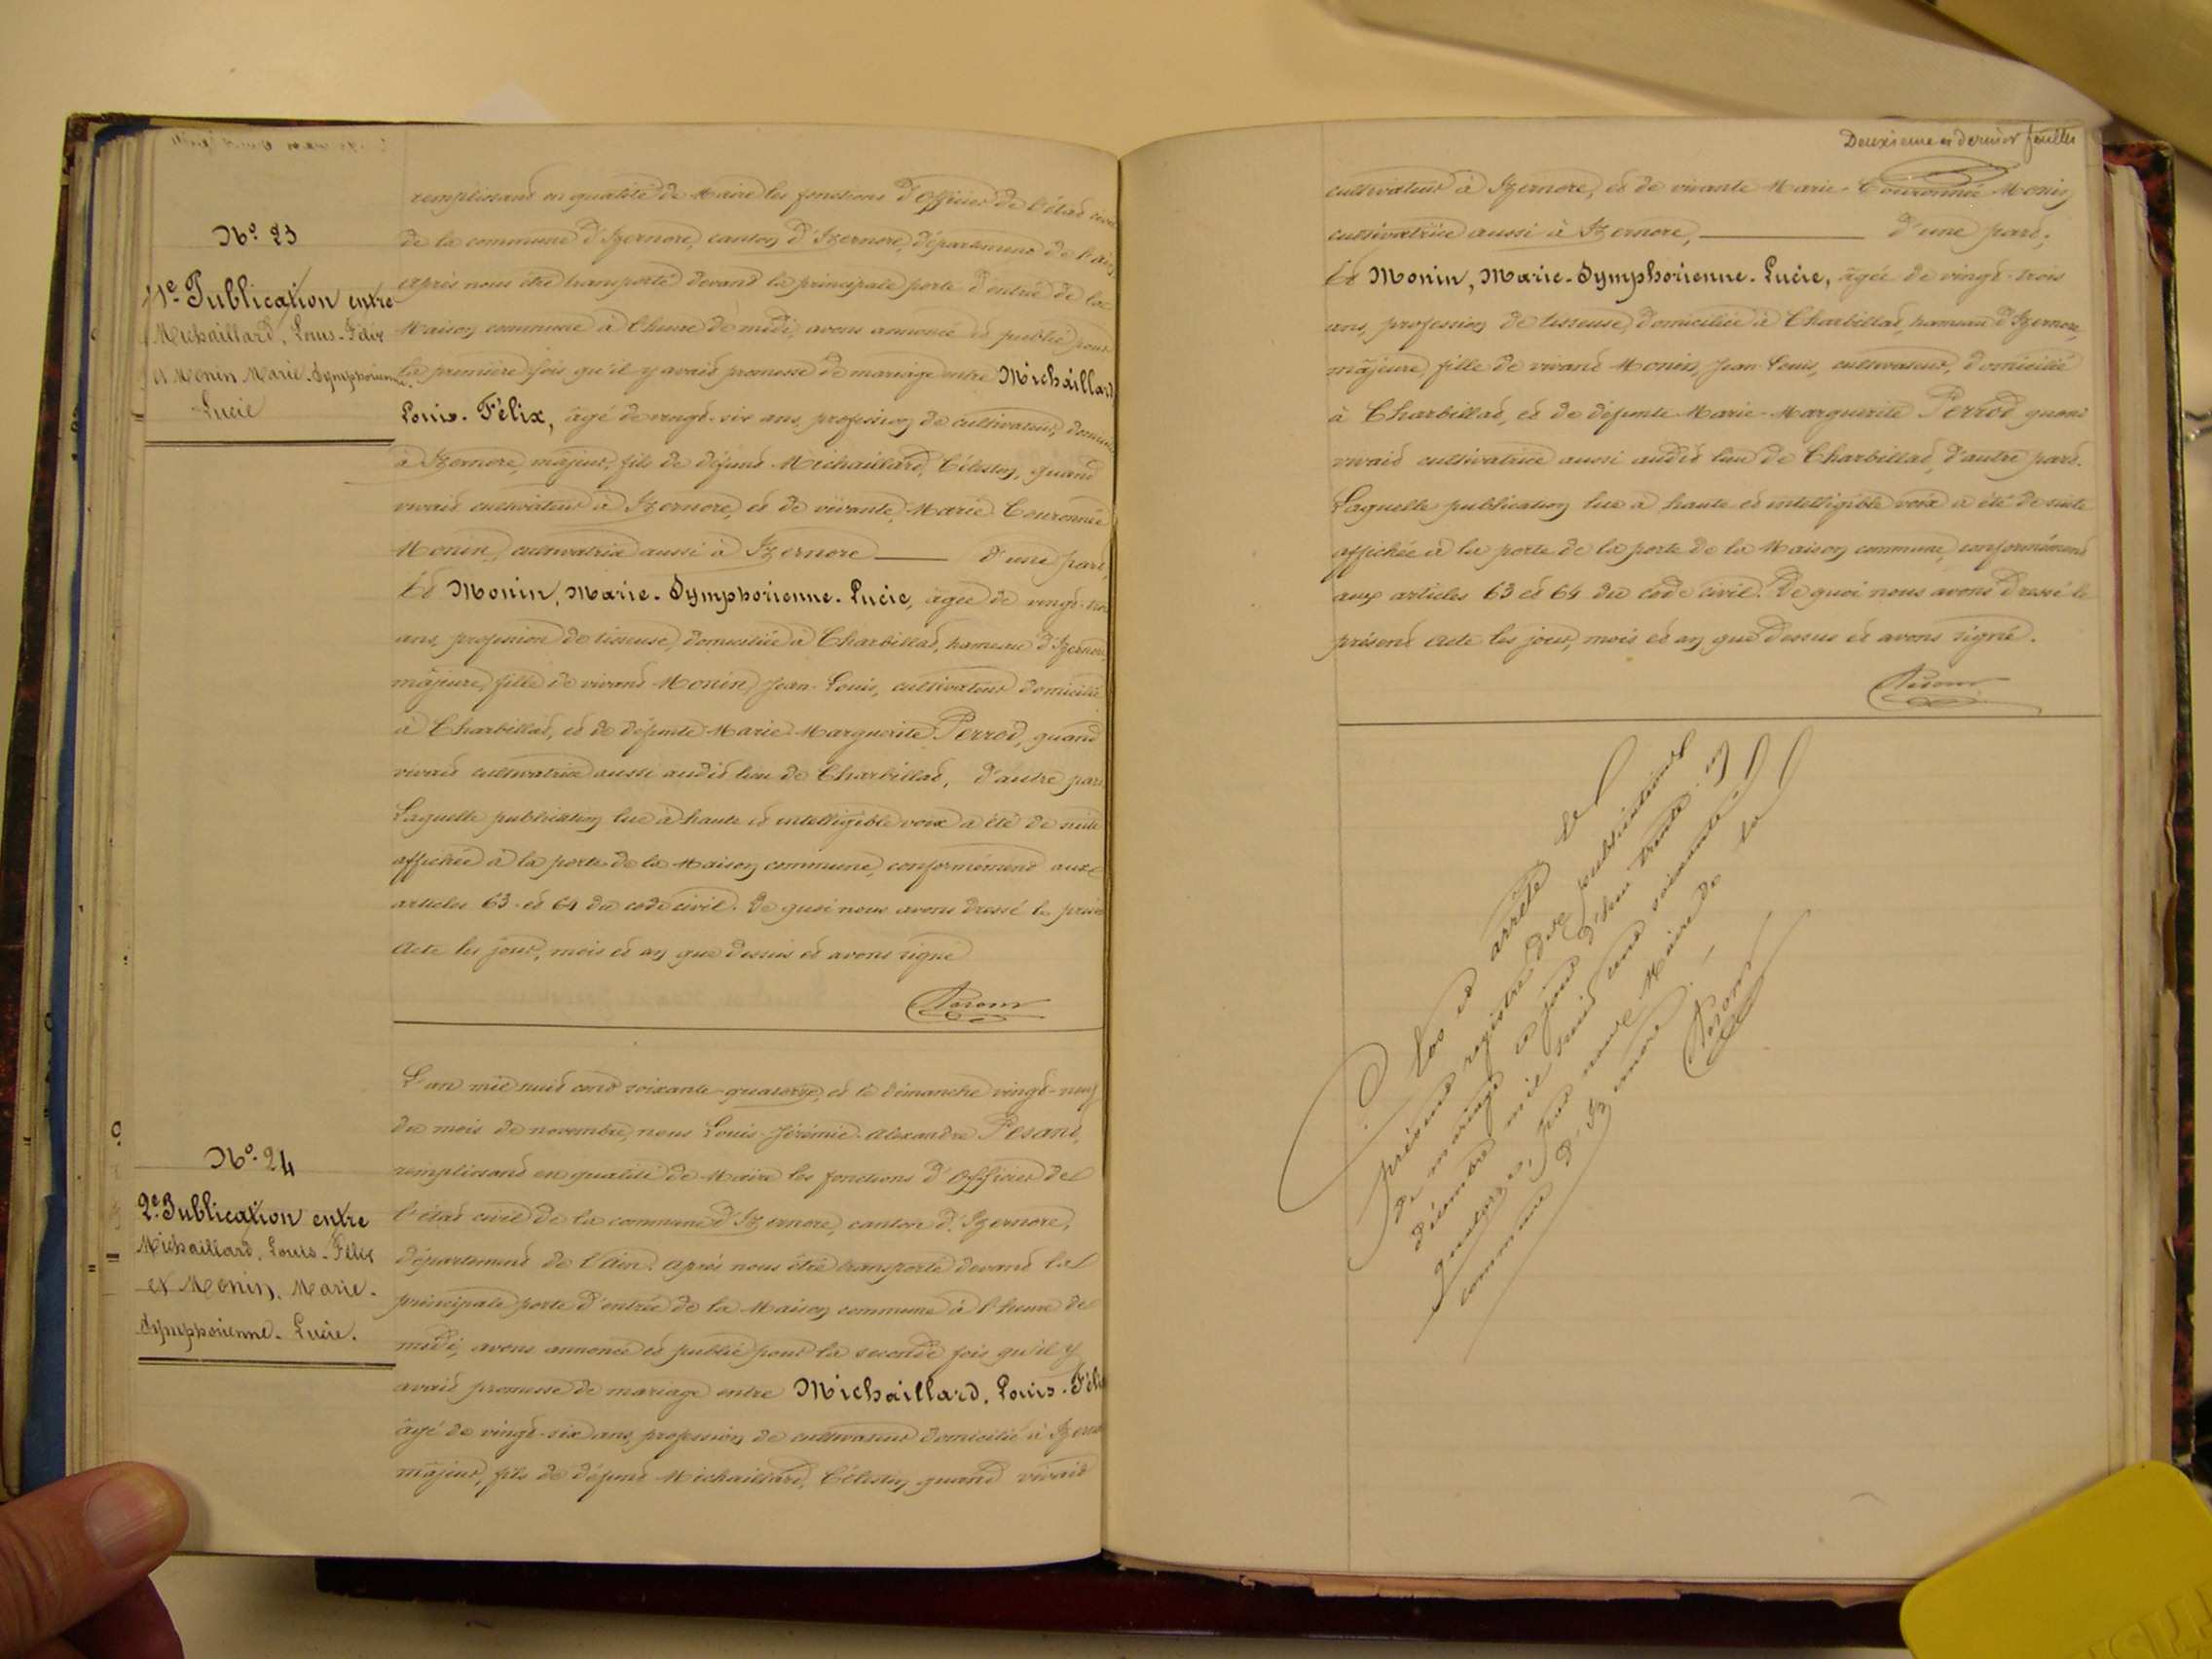 N.º 23
1.e Publication entre
Michaillard, Louis-Félix
et Monin Marie-Symphorienne
Lucie
remplissant en qualité de Maire les fonctions d'Officier de l'état civil
de la commune d'Izernore, canton d'Izernore, département de l'Ain
après nous être transporté devant la principale porte d'entrée de la
Maison commune à l'heure de midi, avons annoncé et publié pour
la première fois qu'il y avait promesse de mariage entre Michaillard
Louis-Félix, âgé de vingt-six ans, profession de cultivateur, domicilié
à Izernore, majeur, fils de défunt Michaillard, Célestin, quand
vivait cultivateur à Izernore, et de vivante Marie Couronnée
Monin, cultivatrice aussi à Izernore d'une part,
Et Monin, Marie-Symphorienne-Lucie, âgée de vingt-trois
ans, profession de tisseuse, domiciliée à Charbillat, hameau d'Izernore,
majeure, fille de vivant Monin, Jean-Louis, cultivateur domicilié
à Charbillat, et de défunte Marie-Marguerite Perrod, quand
vivait cultivatrice aussi audit lieu de Charbillat, d'autre part
Laquelle publication lue à haute et intelligible voix a été de suite
affichée à la porte de la Maison commune, conformément aux
articles 63 et 64 du code civil. De quoi nous avons dressé le présent
Acte les jour, mois et an que dessus et avons signé
N.º 24
2.e Publication entre
Michaillard, Louis-Félix
et Monin, Marie-
Symphorienne-Lucie.
L'an mil huit cent soixante-quatorze, et le dimanche vingt-neuf
du mois de novembre, nous Louis-Jérémie-Alexandre
remplissant en qualité de Maire les fonctions d'Officier de
l'état civil de la commune d'Izernore, canton d'Izernore,
département de l'Ain. Après nous être transporté devant la
principale porte d'entrée de la Maison commune à l'heure de
midi, avons annoncé et publié pour la seconde fois qu'il y
avait promesse de mariage entre Michaillard, Louis-Félix
âgé de vingt-six ans, profession de cultivateur domicilié à Izernore
majeur, fils de défunt Michaillard, Célestin, quand vivait
Deuxième et dernier feuillet
cultivateur à Izernore, et de vivante Marie-Couronnée Monin,
cultivatrice aussi à Izernore, d'une part;
Et Monin, Marie-Symphorienne-Lucie, âgée de vingt-trois
ans, profession de tisseuse, domiciliée à Charbillat, hameau d'Izernore,
majeure, fille de vivant Monin, Jean-Louis, cultivateur, domicilié
à Charbillat, et de défunte Marie-Marguerite Perrod quand
vivait cultivatrice aussi audit lieu de Charbillat, d'autre part.
Laquelle publication lue à haute et intelligible voix a été de suite
affichée à la porte de la porte de la Maison commune, conformément
aux articles 63 et 64 du code civil. De quoi nous avons dressé le
présent Acte les jour, mois et an que dessus et avons signé.
Clos et arrêté le
présent registre de publications
de mariage ce jourd'hui trente-un
décembre mil huit cent soixante
quatorze, par nous Maire de la
commune d'Izernore.